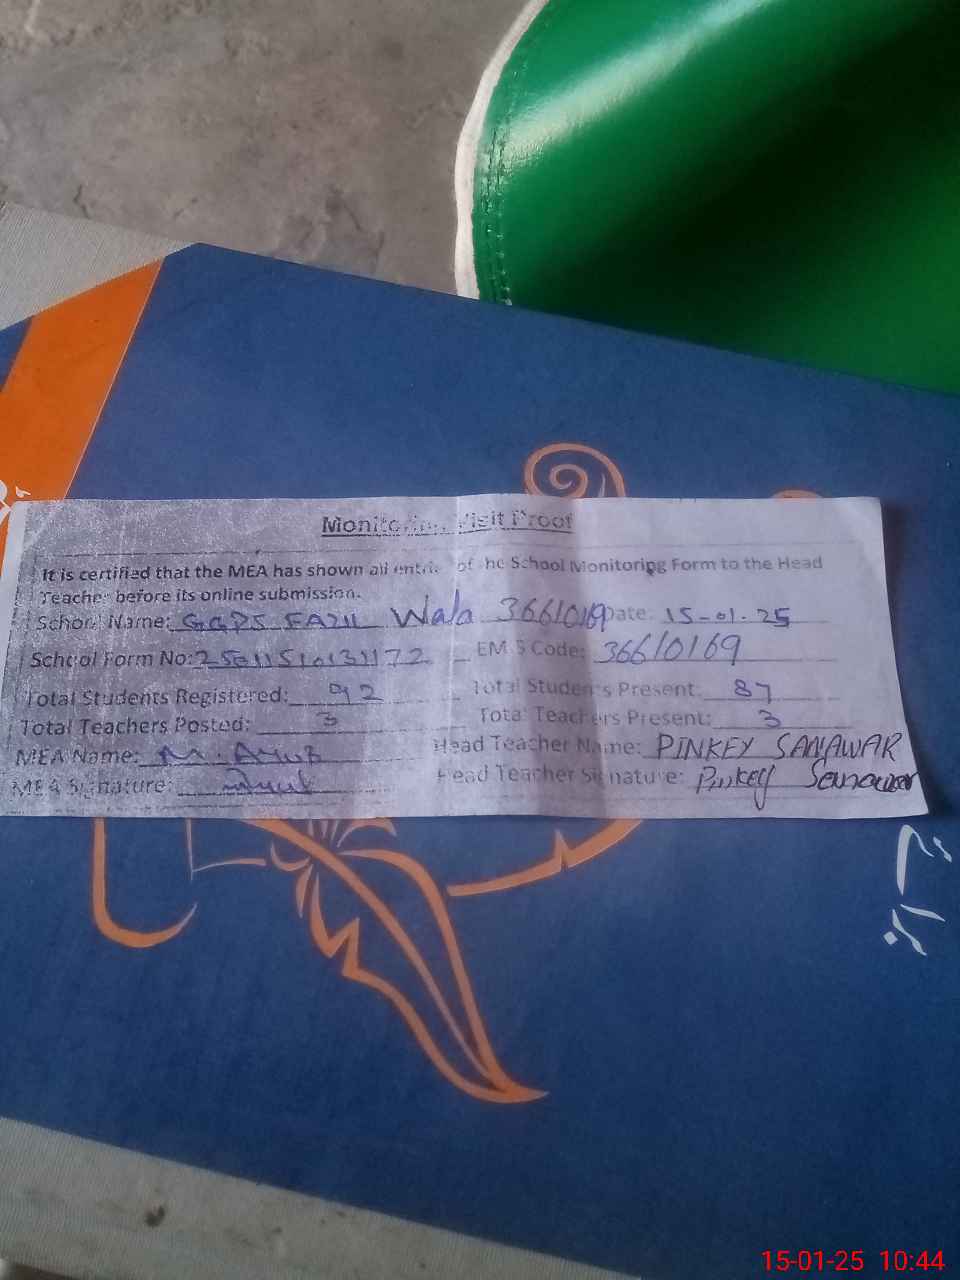 Monitoring Visit Proof
It is certified that the MEA has shown all entries of the School Monitoring Form to the Head
Teacher before its online submission.
School Name: GGPS FAZIL Wala 36610169 Date: 15-01-25
School Form No: 2501151013172 EMIS Code: 36610169
Total Students Registered: 92 Total Students Present: 87
Total Teachers Posted: 3 Total Teachers Present: 3
MEA Name: M. AYUB Head Teacher Name: PINKEY SANAWAR
MEA Signature: Head Teacher Signature: Pinkey Sanawar
15-01-25 10:44